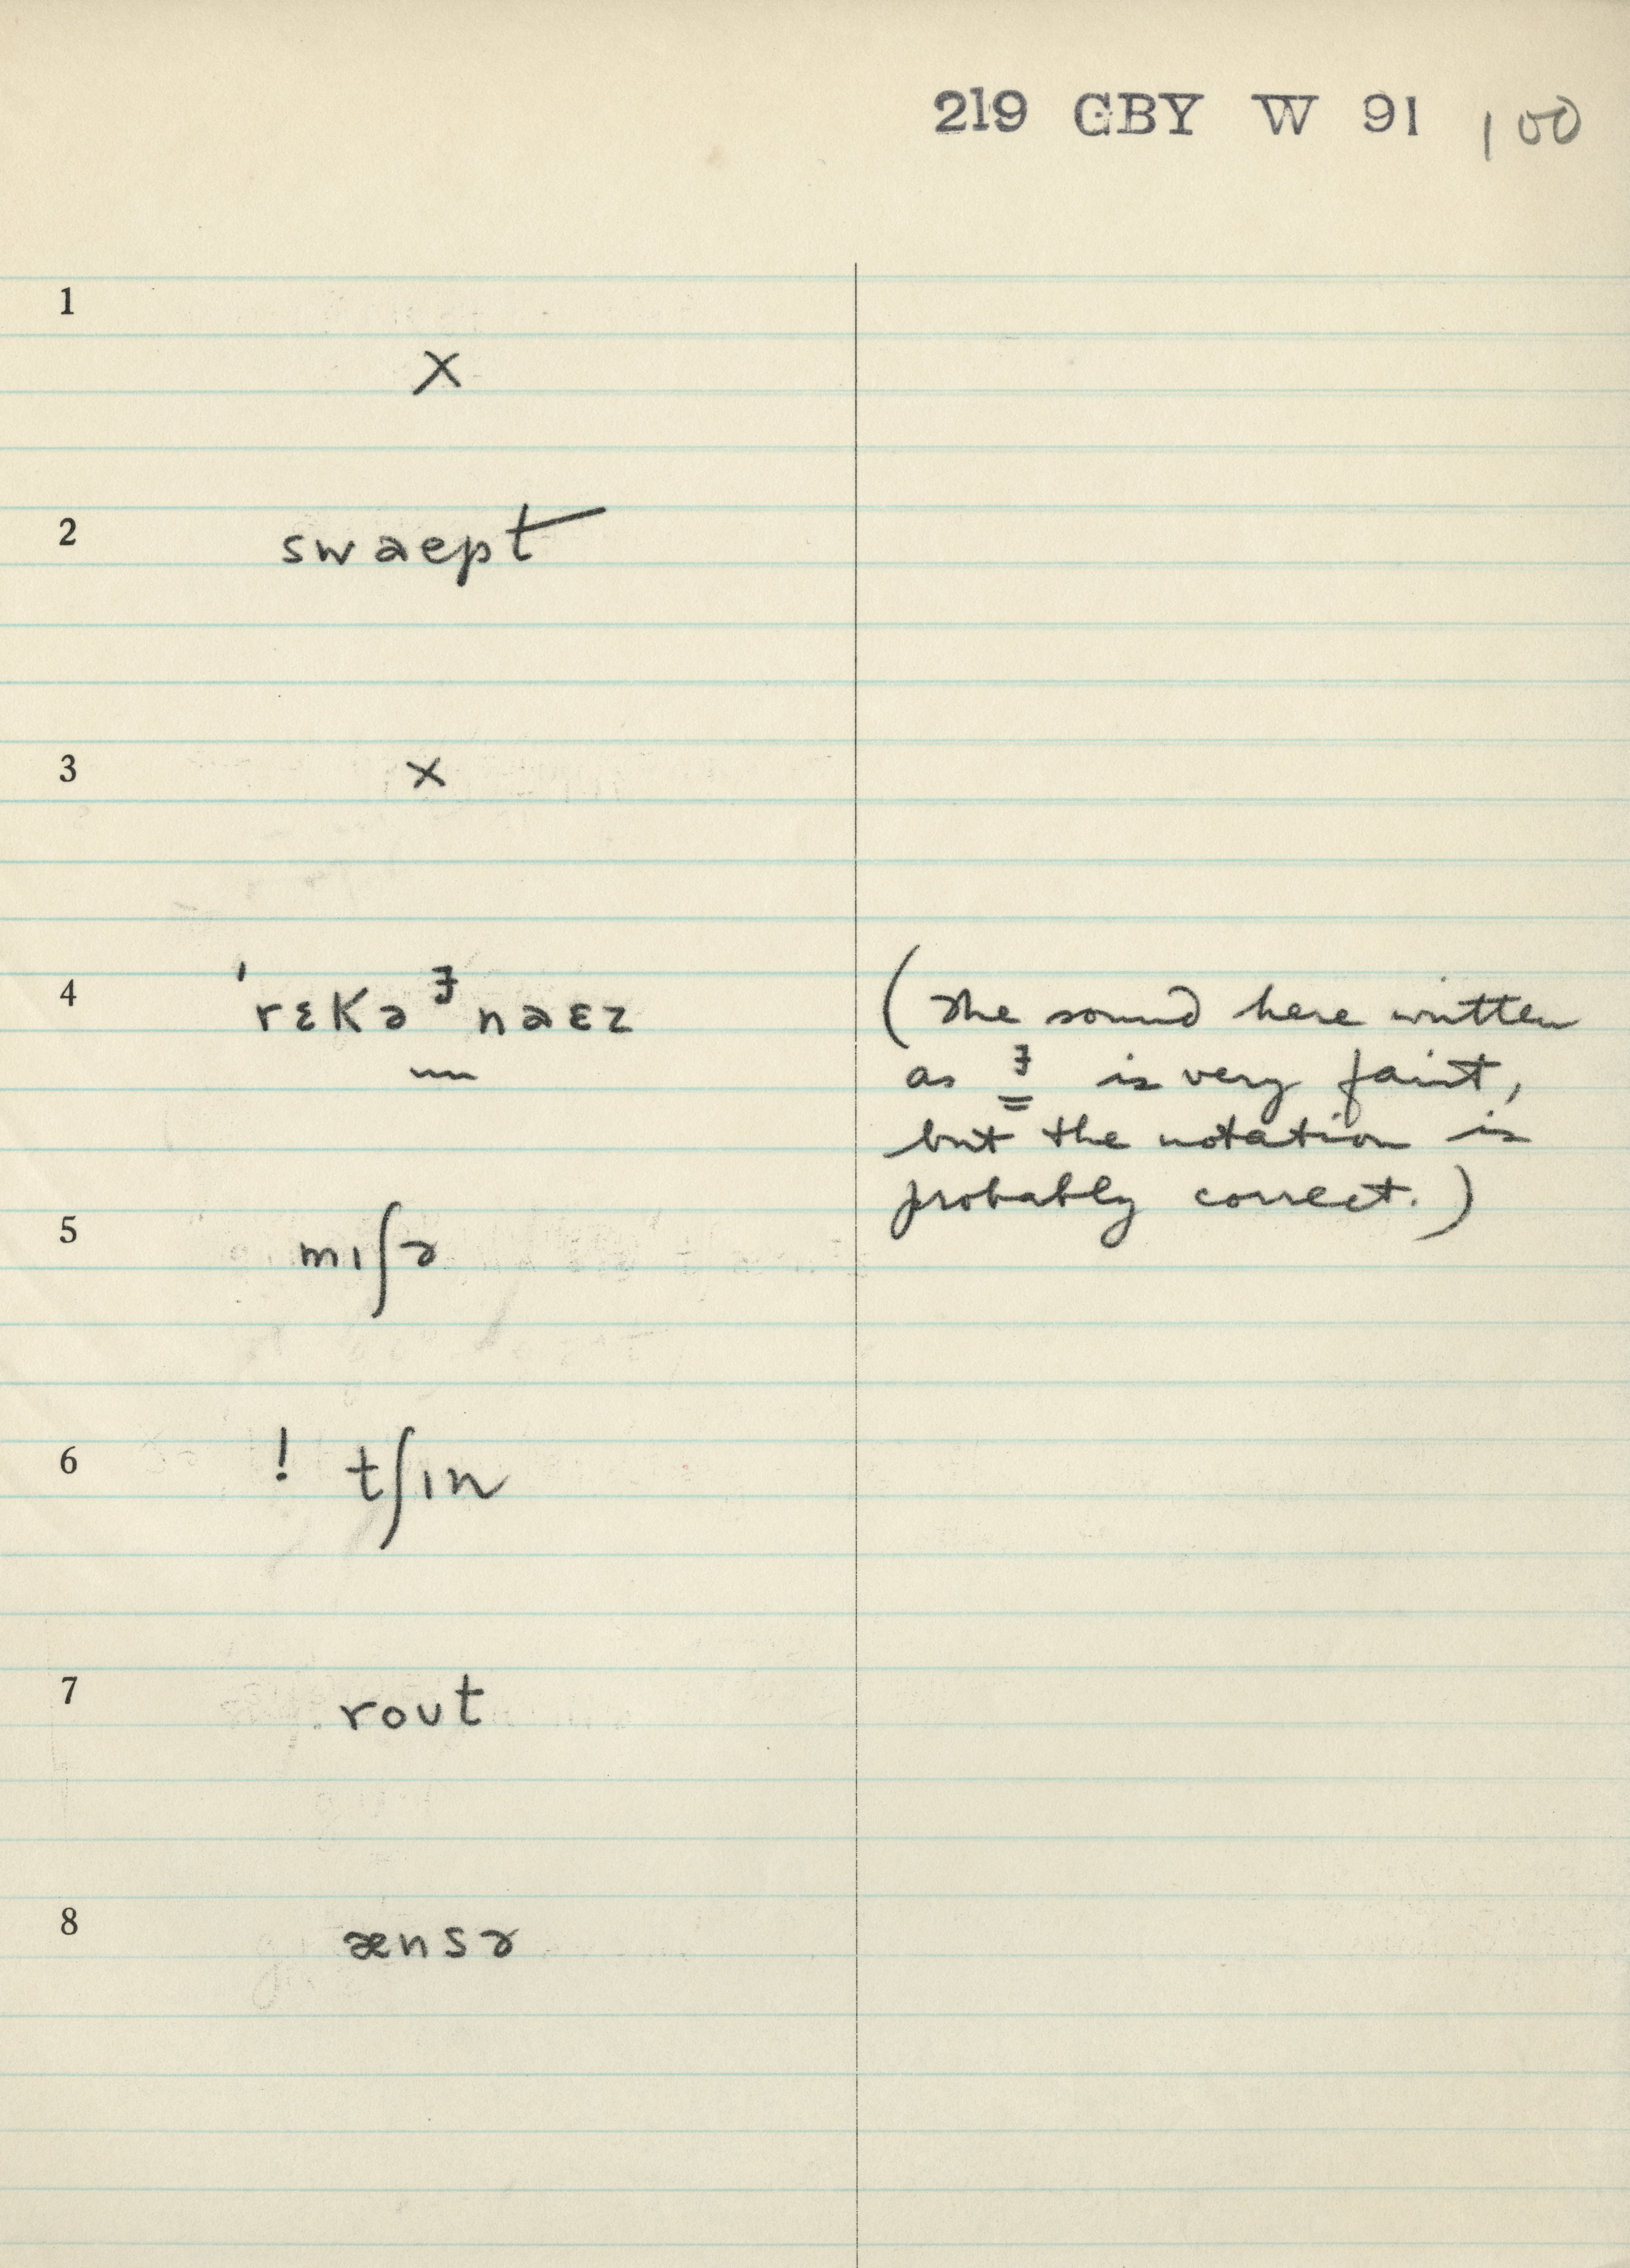 219 GBY W 91 100
1
x
2 swaept
3 x
4 'rɛkə ᶾ naɛz (The sound here written
as ᶾ is very faint,
but the notation is
probably correct.)
5 mıʃɚ
6 ! tʃın
7 rout
8 ænsɚ